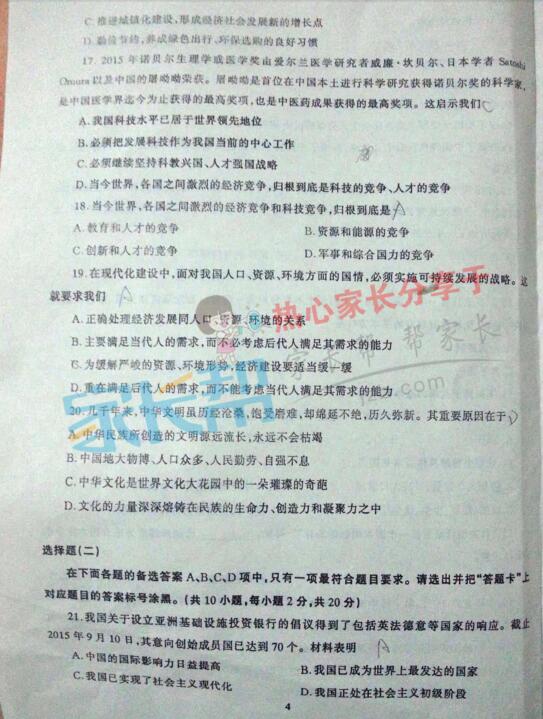 C. 推进城镇化建设,形成经济社会发展新的增长点
D. 勤俭节约,养成绿色出行、环保选购的良好习惯
17. 2015年诺贝尔生理学或医学奖由爱尔兰医学研究者威廉·坎贝尔、日本学者 Satoshi
Omura 以及中国的屠呦呦荣获。屠呦呦是首位在中国本土进行科学研究获得诺贝尔奖的科学家,
是中国医学界迄今为止获得的最高奖项,也是中医药成果获得的最高奖项。这启示我们 C
A. 我国科技水平已居于世界领先地位
B. 必须把发展科技作为我国当前的中心工作
C. 必须继续坚持科教兴国、人才强国战略
D. 当今世界,各国之间激烈的经济竞争,归根到底是科技的竞争、人才的竞争
18. 当今世界,各国之间激烈的经济竞争和科技竞争,归根到底是 A
A. 教育和人才的竞争 B. 资源和能源的竞争
C. 创新和人才的竞争 D. 军事和综合国力的竞争
19. 在现代化建设中,面对我国人口、资源、环境方面的国情,必须实施可持续发展的战略。这
就要求我们 A
热心家长分享于
A. 正确处理经济发展同人口、资源、环境的关系
B. 主要满足当代人的需求,而不必考虑后代人满足其需求的能力
家长帮 帮家长
C. 为缓解严峻的资源、环境形势,经济建设要适当缓一缓
.com
D. 重在满足后代人的需求,而不能考虑当代人满足其需求的能力
家长帮
20. 几千年来,中华文明虽历经沧桑,饱受磨难,却绵延不绝,历久弥新。其重要原因在于 D
A. 中华民族所创造的文明源远流长,永远不会枯竭
B. 中国地大物博、人口众多、人民勤劳、自强不息
C. 中华文化是世界文化大花园中的一朵璀璨的奇葩
D. 文化的力量深深熔铸在民族的生命力、创造力和凝聚力之中
选择题(二)
在下面各题的备选答案 A、B、C、D 项中,只有一项最符合题目要求。请选出并把“答题卡”上
对应题目的答案标号涂黑。(共10小题,每小题2分,共20分)
21. 我国关于设立亚洲基础设施投资银行的倡议得到了包括英法德意等国家的响应。截止
2015年9月10日,其意向创始成员国已达到70个。材料表明 A
A. 中国的国际影响力日益提高 B. 我国已成为世界上最发达的国家
C. 我国已实现了社会主义现代化 D. 我国正处在社会主义初级阶段
4